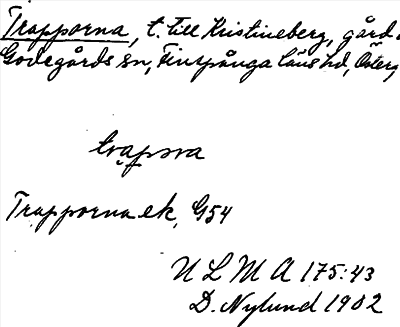 Trapporna, t. till Kristineberg, gård
Godegårds sn, Finspånga läns hd, Österg
trapora
Trapporna ek, G54
ULMA 175:43
D. Nylund 1902